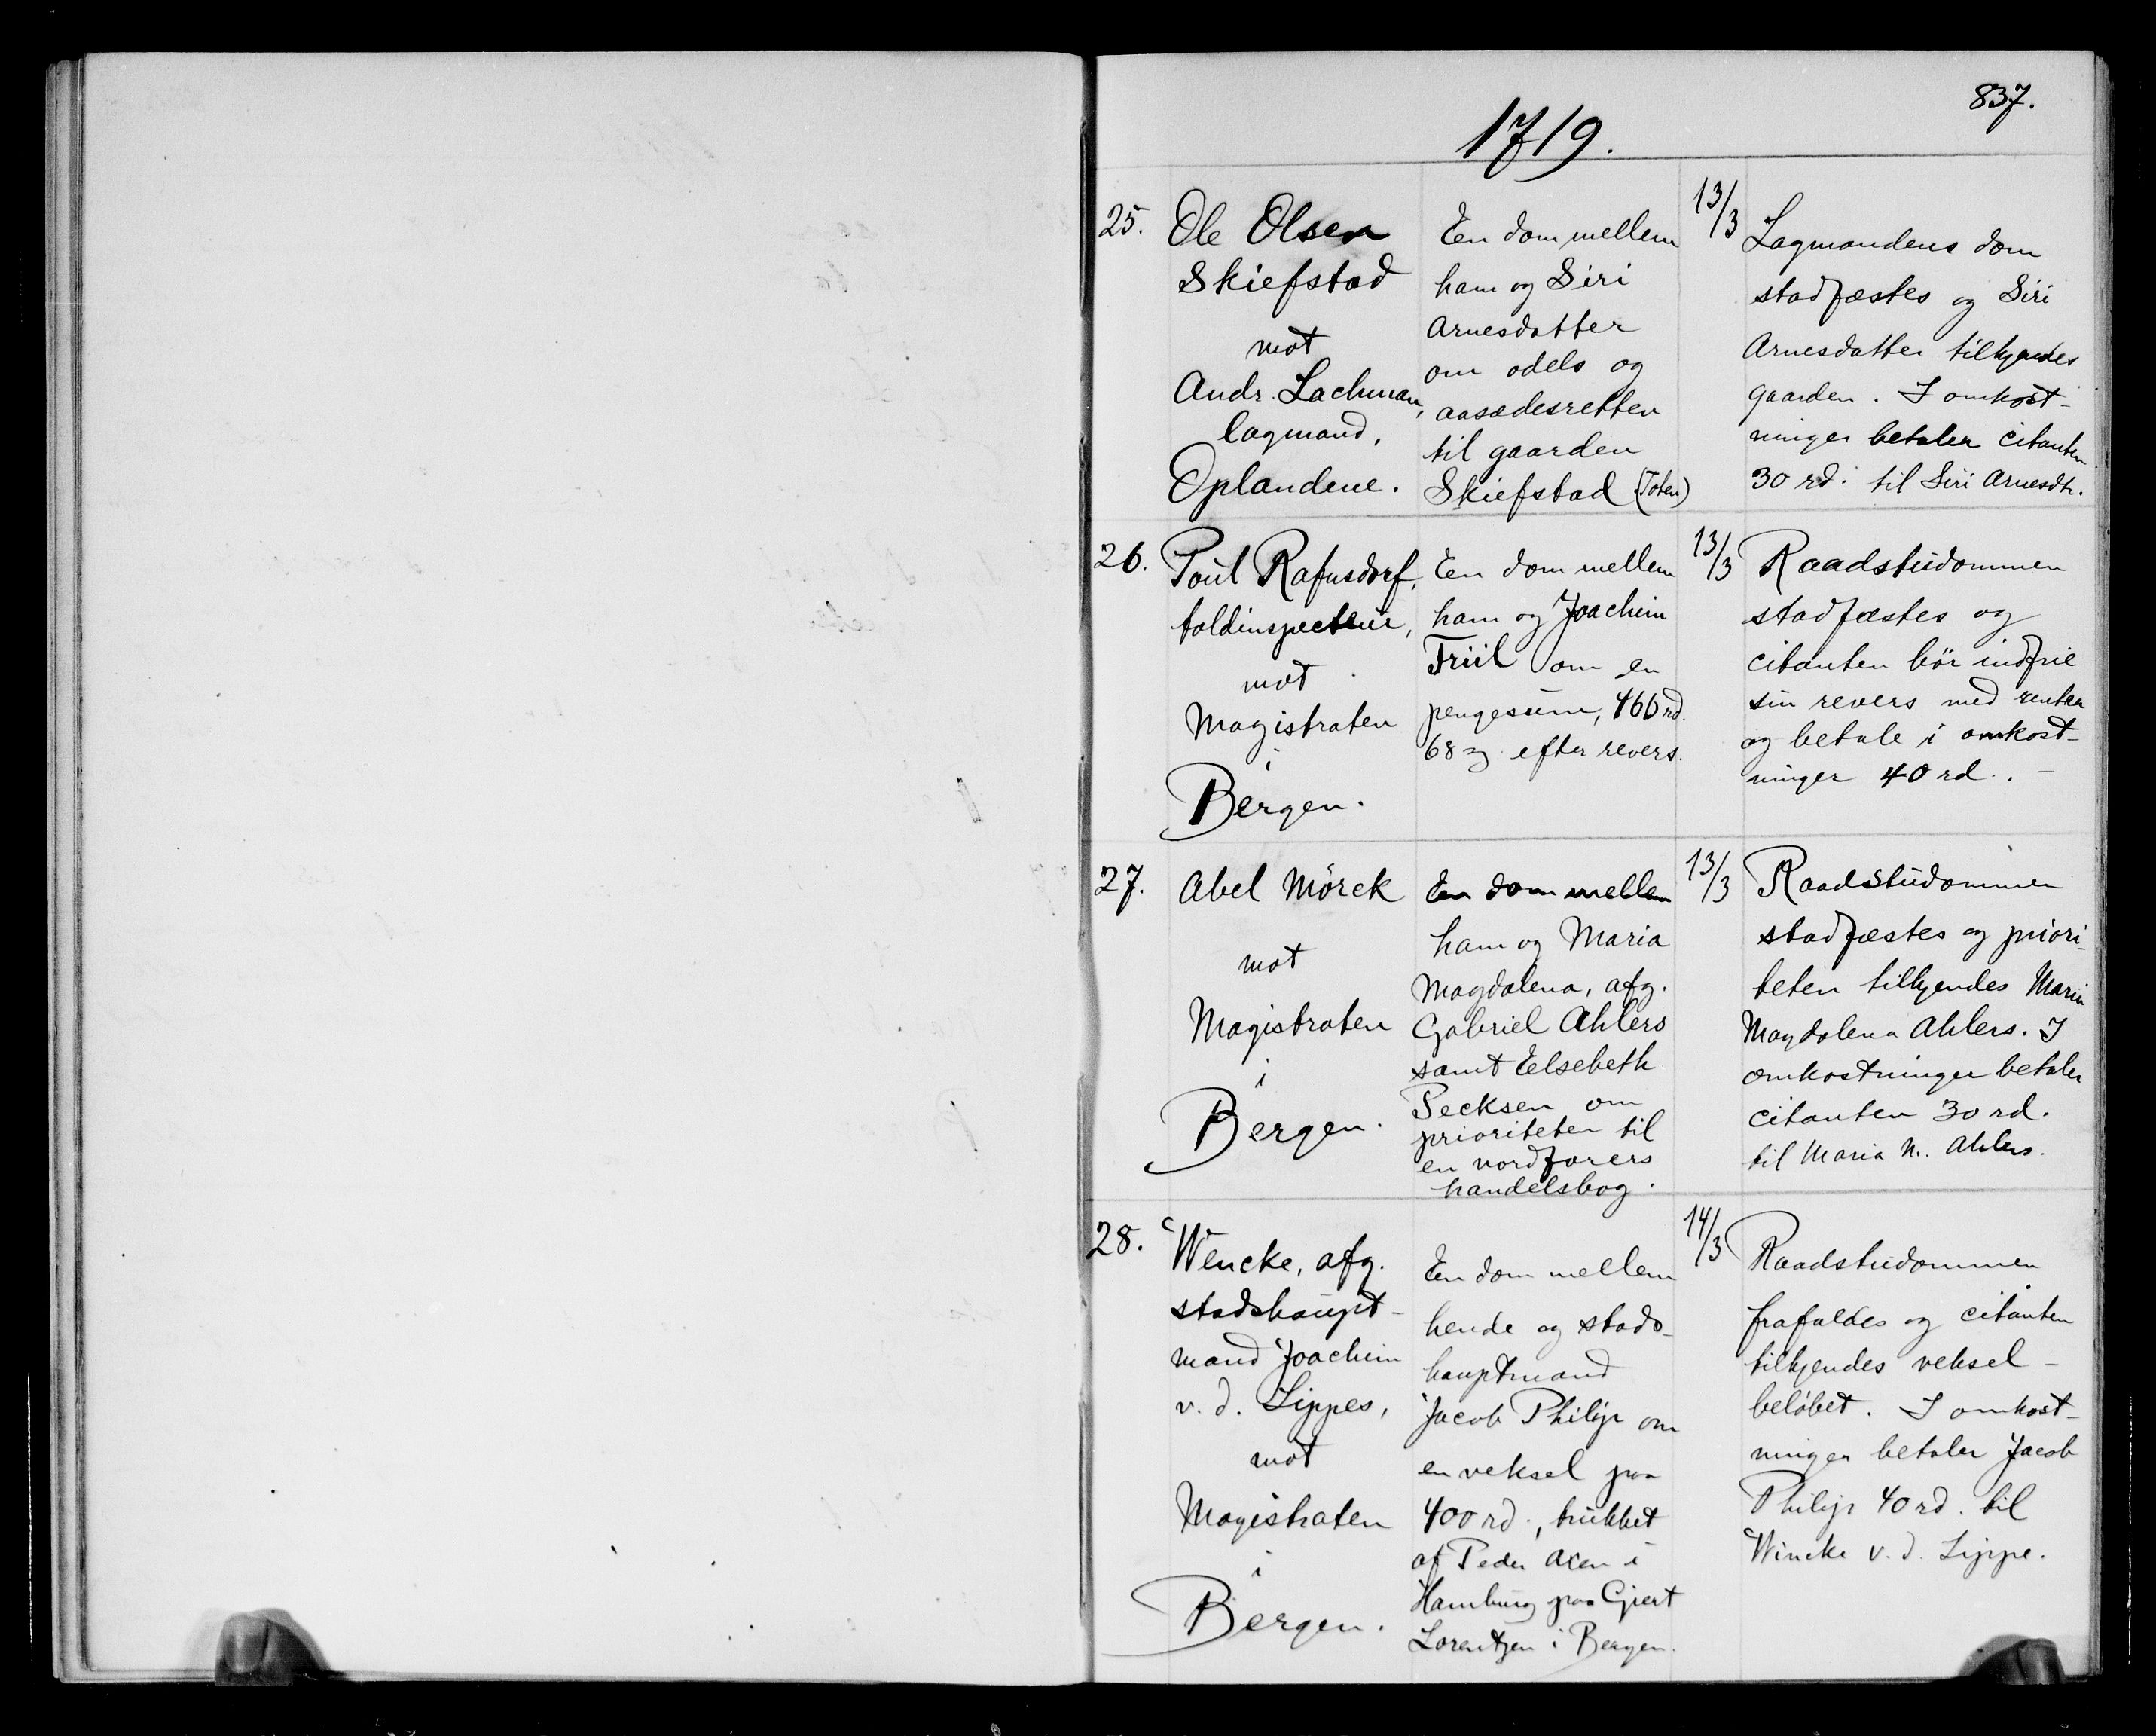 837.
1719.
25.
Ole Olsen
Skiefstad
mot
Andr. Lachman,
lagmand,
Oplandene.
En dom mellem
ham og Siri
Arnesdatter
om odels og
aasædesretten
til gaarden
Skiefstad (Toten)
13/3
Lagmandens dom
stadfæstes og Siri
Arnesdatter tilkjendes
gaarden. I omkost-
ninger betaler citanten
30 rd. til Siri Arnesdtr.
26.
Poul Rafnsdorf,
toldinspecteur,
mot
Magistraten
i
Bergen.
En dom mellem
ham og Joachim
Friil om en
pengesum, 466 rd.
68 ß efter revers.
13/3
Raadstudommen
stadfæstes og
citanten bör indfrie
sin revers med renter
og betale i omkost-
ninger 40 rd. -
27.
Abel Mörck
mot
Magistraten
i
Bergen.
En dom mellem
ham og Maria
Magdalena, afg.
Gabriel Ahlers
samt Elsebeth
Pecksen om
prioriteten til
en nordfarers
handelsbog.
13/3
Raadstudommen
stadfæstes og priori-
teten tilkjendes Maria
Magdalena Ahlers. I
omkostninger betaler
citanten 30 rd.
til Maria M. Ahlers.
28.
Wencke, afg.
stadshaupt-
mand Joachim
v. d. Lippes,
mot
Magistraten
i
Bergen.
En dom mellem
hende og stads-
hauptmand
Jacob Philip om
en veksel paa
400 rd., trukket
af Peder Axen i
Hamburg paa Giert
Lorentzen i Bergen.
14/3
Raadstudommen
frafaldes og citanten
tilkjendes veksel-
beløbet. I omkost-
ninger betaler Jacob
Philip 40 rd. til
Wincke v. d. Lippe.